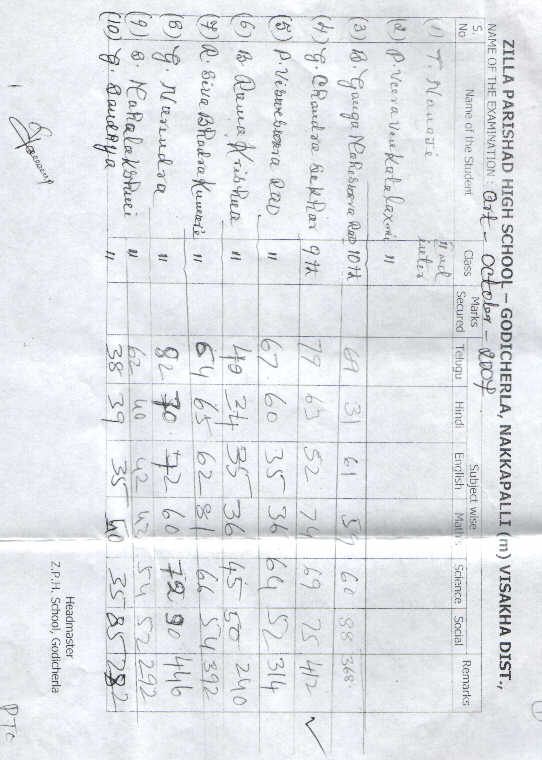 ZILLA PARISHAD HIGH SCHOOL – GODICHERLA, NAKKAPALLI (m) VISAKHA DIST.,
NAME OF THE EXAMINATION : October - 2007
S. No Name of the Student Class Marks Secured Subject wise Remarks
Telugu Hindi English Maths Science Social
(1) T. Nanaji IInd inter
(2) P. Veera Venkatalaxmi "
(3) B. Ganga Maheswara Rao 10th 69 31 61 59 60 88 368
(4) G. Chandra Sekhar 9th 79 63 52 74 69 75 412
(5) P. Visweswara Rao " 67 60 35 36 64 52 314
(6) B. Rama Krishna " 40 34 35 36 45 50 240
(7) R. Siva Bhadra Kumari " 64 65 62 81 66 54 392
(8) G. Narendra " 82 70 72 60 72 90 446
(9) B. Mahalakshmi " 62 40 42 42 54 52 292
(10) G. Sandhya " 38 39 35 40 35 85 282
Headmaster
Z.P.H. School, Godicherla
PTO